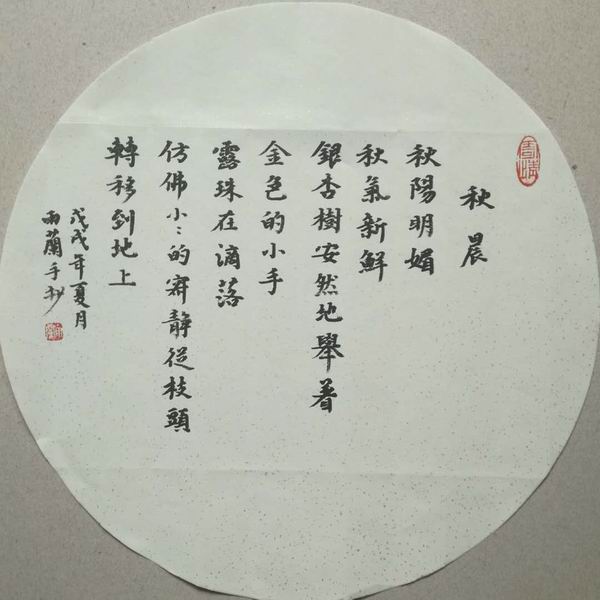 秋晨
秋陽明媚
秋氣新鮮
銀杏樹安然地舉着
金色的小手
露珠在滴落
仿佛小〻的寂靜從枝頭
轉移到地上
戊戌年夏月
雨蘭手抄